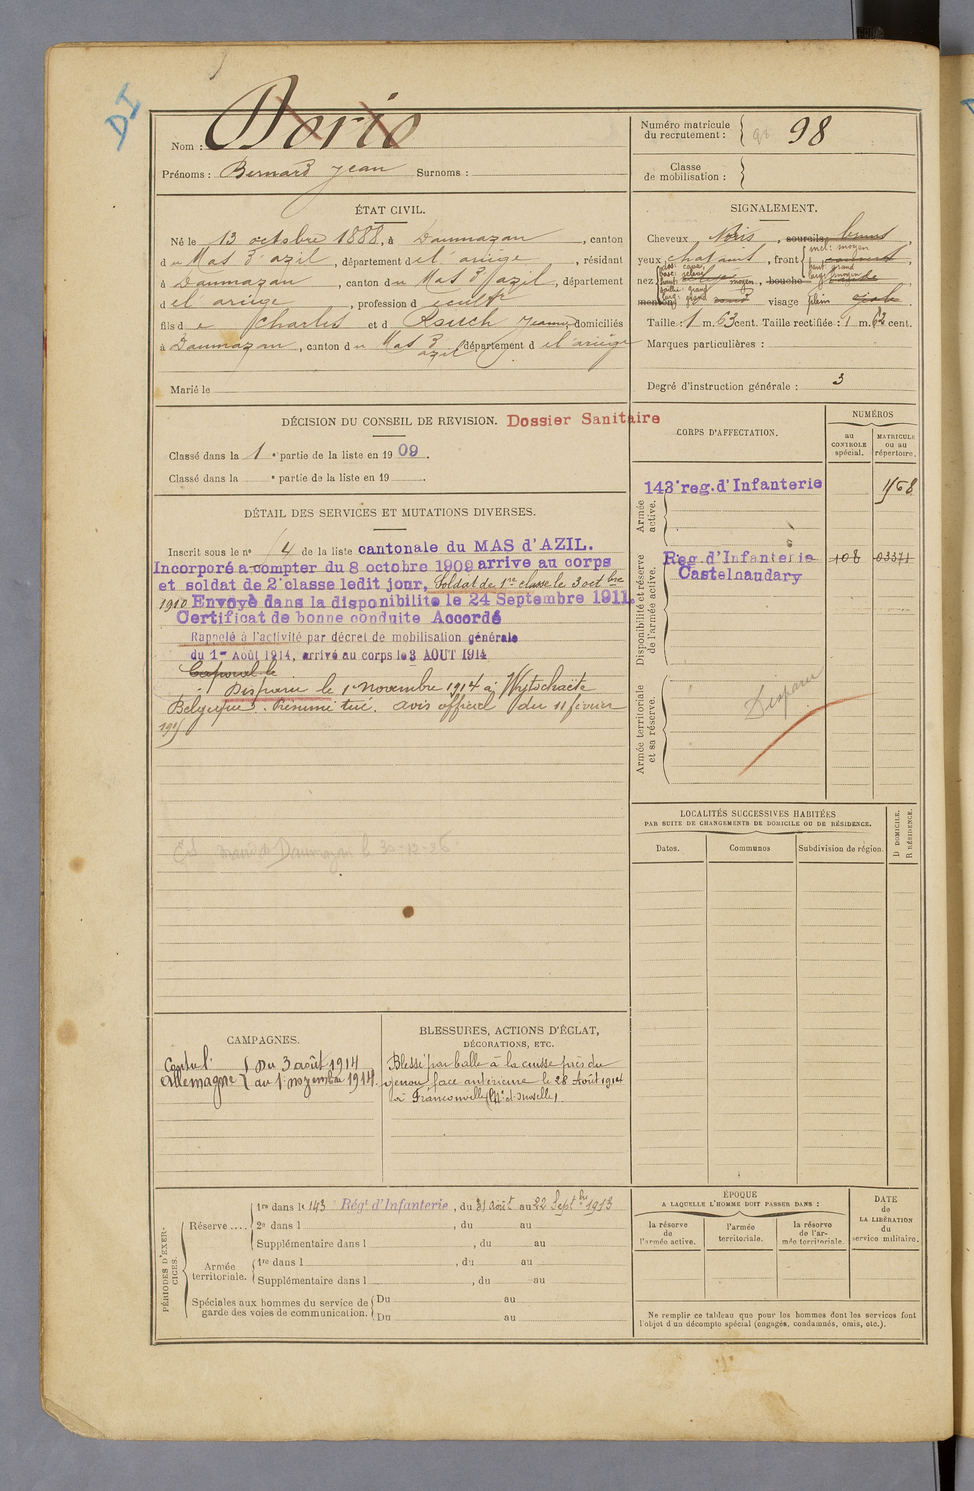 DI
Nom : Doris
Prénoms : Bernard Jean Surnoms :
Numéro matricule du recrutement : 98
Classe de mobilisation :
ÉTAT CIVIL.
Né le 13 octobre 1888, à Daumazan, canton
du Mas d'azil, département de l'ariège, résidant
à Daumazan, canton du Mas d'azil, département
d el'ariège, profession d
fils de Charles et d Jeanne, domiciliés
à Daumazan, canton du Mas d'azil, département d el'ariège
Marié le
SIGNALEMENT.
Cheveux Noirs, sourcils bruns
yeux chatains, front incl: moyen
haut: grand
nez dos: moyen, bouche
menton rond visage plein
Taille : 1 m. 63 cent. Taille rectifiée : 1 m. 62 cent.
Marques particulières :
Degré d'instruction générale : 3
DÉCISION DU CONSEIL DE REVISION. Dossier Sanitaire
Classé dans la 1e partie de la liste en 1909.
Classé dans la e partie de la liste en 19 .
CORPS D'AFFECTATION.
NUMÉROS
au CONTROLE spécial.
MATRICULE ou au répertoire.
Armée active.
143e reg. d'Infanterie
Disponibilité et réserve de l'armée active.
Reg. d'Infanterie 108 03371
Castelnaudary
Armée territoriale et sa réserve.
Disparu
DÉTAIL DES SERVICES ET MUTATIONS DIVERSES.
Inscrit sous le no 14 de la liste cantonale du MAS d'AZIL.
Incorporé à compter du 8 octobre 1909 arrive au corps
et soldat de 2e classe ledit jour, Soldat de 1re classe le 3 octbre
1910 Envoyé dans la disponibilite le 24 Septembre 1911.
Certificat de bonne conduite Accordé
Rappelé à l'activité par décret de mobilisation générale
du 1er Août 1914, arrivé au corps le 3 AOUT 1914
Caporal le
Disparu le 1er novembre 1914 à Wytschaëte
Belgique. Présumé tué. avis officiel du 11 février
1915
Daumazan le 30-12-26
LOCALITÉS SUCCESSIVES HABITÉES
PAR SUITE DE CHANGEMENTS DE DOMICILE OU DE RÉSIDENCE.
Dates.
Communes
Subdivision de région.
D DOMICILE.
R RÉSIDENCE.
CAMPAGNES.
Contre l' Du 3 août 1914
Allemagne au 1er novembre 1914.
BLESSURES, ACTIONS D'ÉCLAT,
DÉCORATIONS, ETC.
Blessé par balle à la cuisse près du
genou face antérieure le 28 Août 1914
à Franconville (Mthe et Moselle).
PÉRIODES D'EXERCICES.
Réserve .... 1re dans le 143 Régt d'Infanterie, du 31 août au 22 Septbre 1913
2e dans l , du au
Supplémentaire dans l , du au
Armée territoriale. 1re dans l , du au
Supplémentaire dans l , du au
Spéciales aux hommes du service de garde des voies de communication. Du au
Du au
ÉPOQUE
A LAQUELLE L'HOMME DOIT PASSER DANS :
la réserve de l'armée active.
l'armée territoriale.
la réserve de l'armée territoriale.
DATE de LA LIBÉRATION du service militaire.
Ne remplir ce tableau que pour les hommes dont les services font
l'objet d'un décompte spécial (engagés, condamnés, omis, etc.).